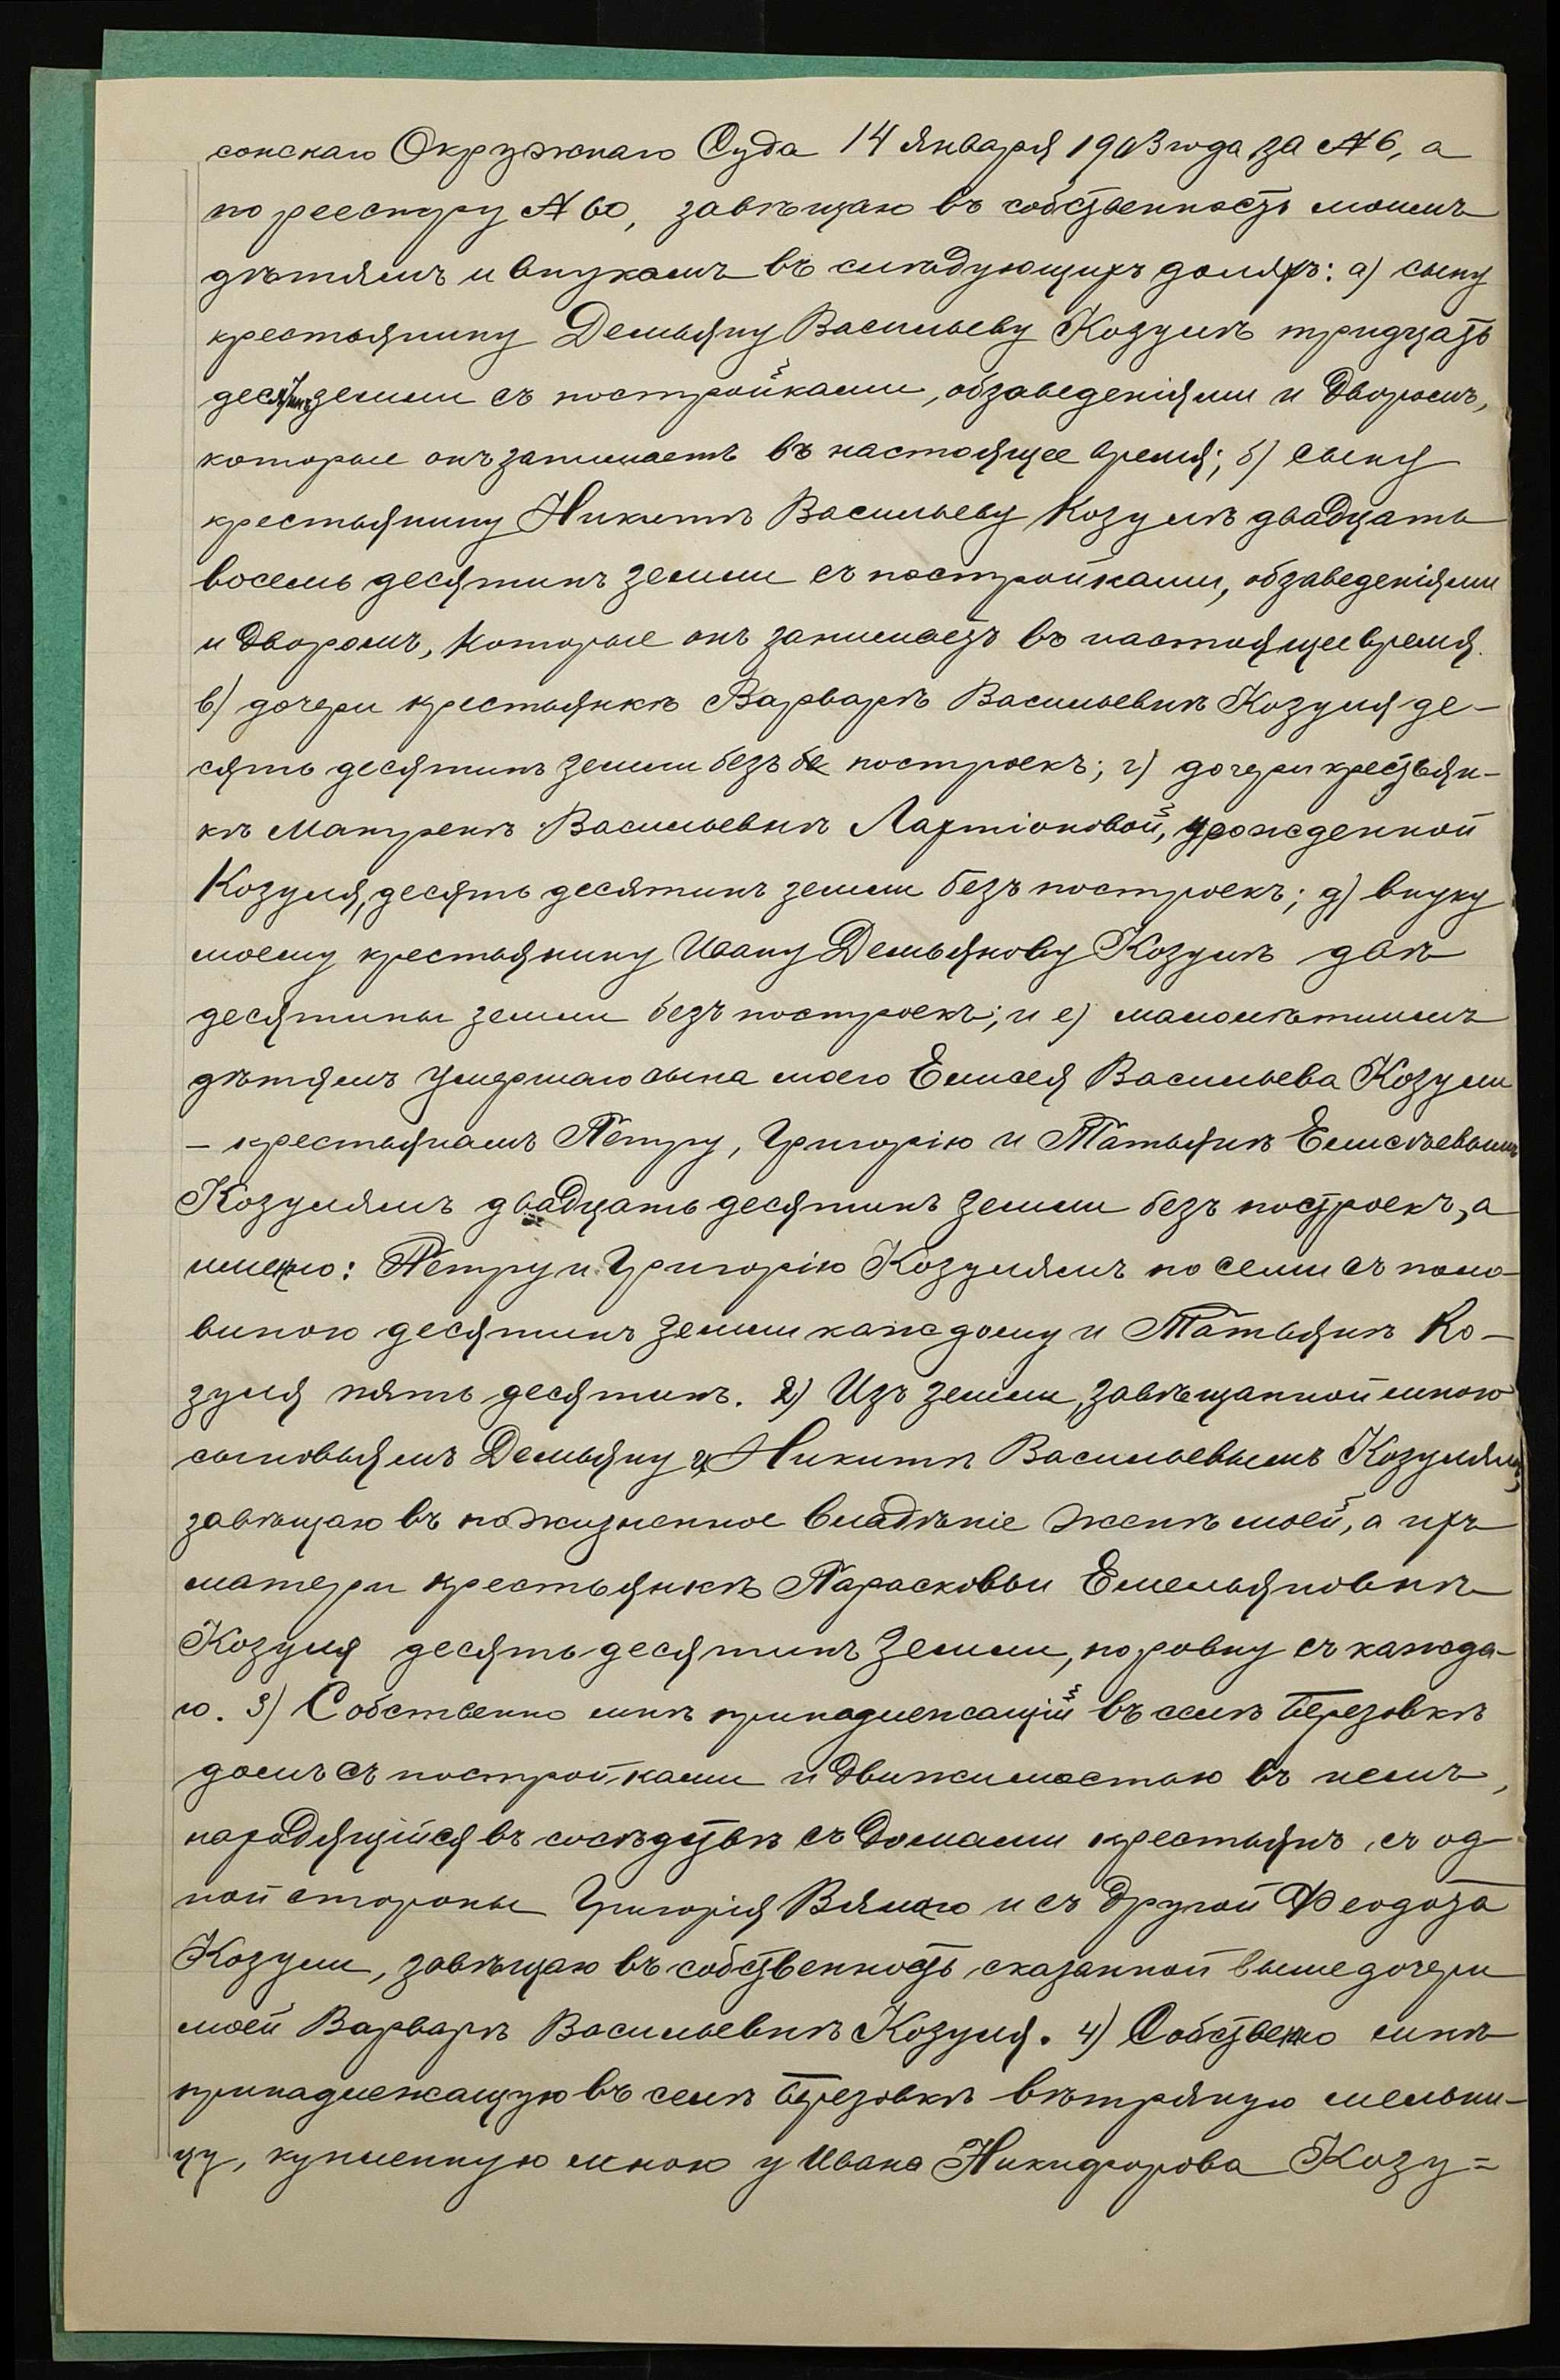 сонскаго Окружнаго Суда 14 января 1903 года за № 6, а
по реестру № 60, завѣщаю въ собственность моимъ
дѣтямъ и внукамъ въ слѣдующихъ доляхъ: а) сыну
крестьянину Демьяну Васильеву Козулѣ тридцать
десятинъ земли съ постройками, обзаведеніями и дворомъ,
которые онъ занимаетъ въ настоящее время; б) сыну
крестьянину Никитѣ Васильеву Козулѣ двадцать
восемь десятинъ земли съ постройками, обзаведеніями
и дворомъ, которые онъ занимаетъ въ настоящее время.
в) дочери крестьянкѣ Варварѣ Васильевнѣ Козуля де-
сять десятинъ земли безъ бе построекъ; г) дочери крестьян-
кѣ Матренѣ Васильевнѣ Ларіоновой, урожденной
Козуля, десять десятинъ земли безъ построекъ; д) внуку
моему крестьянину Ивану Демьянову Козулѣ двѣ
десятины земли безъ построекъ; и е) малолѣтнимъ
дѣтямъ умершаго сына моего Елисея Васильева Козули
– крестьянамъ Петру, Григорію и Татьянѣ Елисѣевымъ
Козулямъ двадцать десятинъ земли безъ построекъ, а
именно: Петру и Григорію Козулямъ по семи съ поло-
виною десятинъ земли каждому и Татьянѣ Ко-
зуля пять десятинъ. 2) Изъ земли, завѣщанной мною
сыновьямъ Демьяну и Никитѣ Васильевымъ Козулямъ,
завѣщаю въ пожизненное владѣніе женѣ моей, а ихъ
матери крестьянкѣ Парасковьи Емельяновнѣ
Козуля десять десятинъ земли, поровну съ каждо-
го. 3) Собственно мнѣ принадлежащій въ селѣ Березовкѣ
домъ съ постройками и движимостью въ немъ,
находящійся въ сосѣдствѣ съ домами крестьянъ, съ од-
ной стороны Григорія Вялаго и съ другой Феодоза
Козули, завѣщаю въ собственность сказанной выше дочери
моей Варварѣ Васильевнѣ Козуля. 4) Собственно мнѣ
принадлежащую въ селѣ Березовкѣ вѣтряную мельни-
цу, купленную мною у Ивана Никифорова Козу=